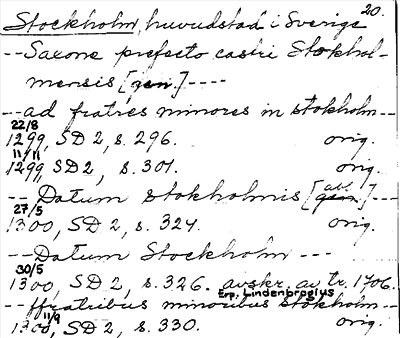 20.
Stockholm, huvudstad i Sverige
-- Saxone prefecto castri Stokhol-
mensis [gen.] ----
-- ad fratres minores in stokholm --
22/8
1299, SD 2, s. 296. orig.
11/11
1299, SD 2, s. 301. orig.
-- Datum stokholmis [abl. gen.] ---
27/5
1300, SD 2, s. 324. orig.
-- Datum Stockholm ---
30/5
1300, SD 2, s. 326. avskr. av tr. 1706.
Erp. Lindenbrogius
-- ffratribus minoribus stokholm --
11/9
1300, SD 2, s. 330. orig.